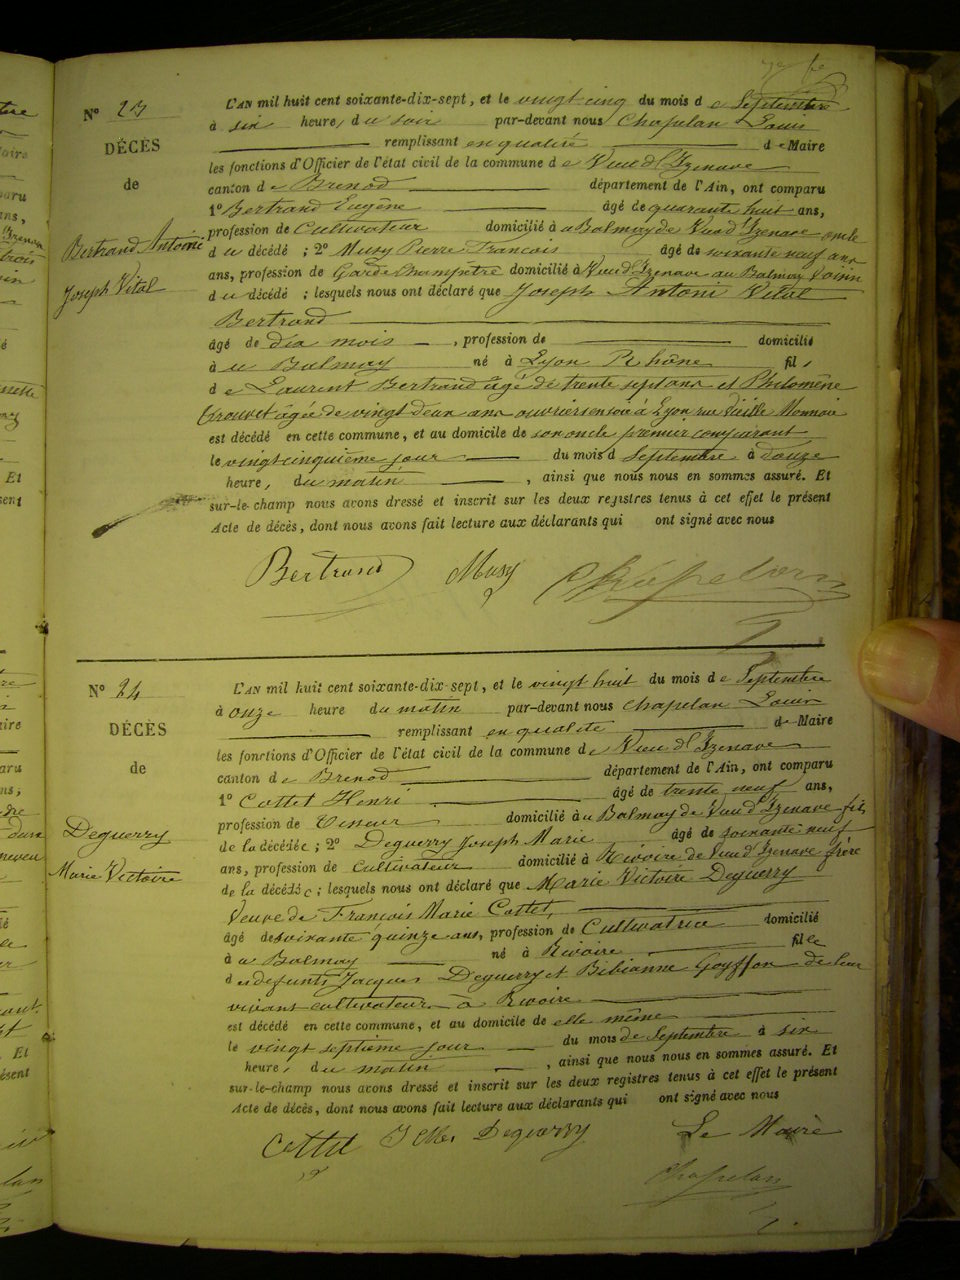 N° 23
DÉCÈS
de
Bertrand Antoine
Joseph Vital
L'AN mil huit cent soixante-dix-sept, et le vingt cinq du mois de Septembre
à six heure, du soir par-devant nous Chapelan Louis
remplissant en qualité de Maire
les fonctions d'Officier de l'état civil de la commune de Vieu d'Izenave
canton de Brenod département de l'Ain, ont comparu
1° Bertrand Eugène âgé de quarante huit ans,
profession de Cultivateur domicilié à a Balmay de Vieu d'Izenave oncle
du décédé ; 2° Musy Pierre Francois âgé de soixante neuf ans
ans, profession de Garde Champêtre domicilié à Vieu d'Izenave au Balmay Voisin
du décédé ; lesquels nous ont déclaré que Joseph Antoni Vital
Bertrand
âgé de dix mois , profession de domicilié
à u Balmay né à Lyon Rhône fil,
de Laurent Bertrand âgé de trente sept ans et Philomène
âgée de vingt deux ans ouvriers en soie à Lyon rue Vieille Monnaie
est décédé en cette commune, et au domicile de son oncle premier comparant
le vingt cinquième jour du mois d Septembre à douze
heure, du matin , ainsi que nous nous en sommes assuré. Et
sur-le-champ nous avons dressé et inscrit sur les deux registres tenus à cet effet le présent
Acte de décès, dont nous avons fait lecture aux déclarants qui ont signé avec nous
Bertrand Musy Chapelan
N° 24
DÉCÈS
de
Deguerry
Marie Victoire
L'AN mil huit cent soixante-dix-sept, et le vingt huit du mois de Septembre
à onze heure du matin par-devant nous Chapelan Louis
remplissant en qualité de Maire
les fonctions d'Officier de l'état civil de la commune de Vieu d'Izenave
canton de Brenod département de l'Ain, ont comparu
1° Cottet Henri âgé de trente neuf ans,
profession de domicilié à u Balmay de Vieu d'Izenave fils
de la décédée ; 2° Deguerry Joseph Marie âgé de soixante neuf
ans, profession de Cultivateur domicilié à Rivoire de Vieu d'Izenave frère
de la décédée ; lesquels nous ont déclaré que Marie Victoire Deguerry
Veuve de François Marie Cottet,
âgé de soixante quinze ans, profession de Cultivatrice domicilié
à u Balmay né à Rivoire fille
des défunts Jacques Deguerry et Bibianne Goyffon de leur
vivant cultivateur à Rivoire
est décédé en cette commune, et au domicile de elle même
le vingt septième jour du mois de Septembre à six
heure, du matin , ainsi que nous nous en sommes assuré. Et
sur-le-champ nous avons dressé et inscrit sur les deux registres tenus à cet effet le présent
Acte de décès, dont nous avons fait lecture aux déclarants qui ont signé avec nous
Cottet Deguerry Le Maire
Chapelan